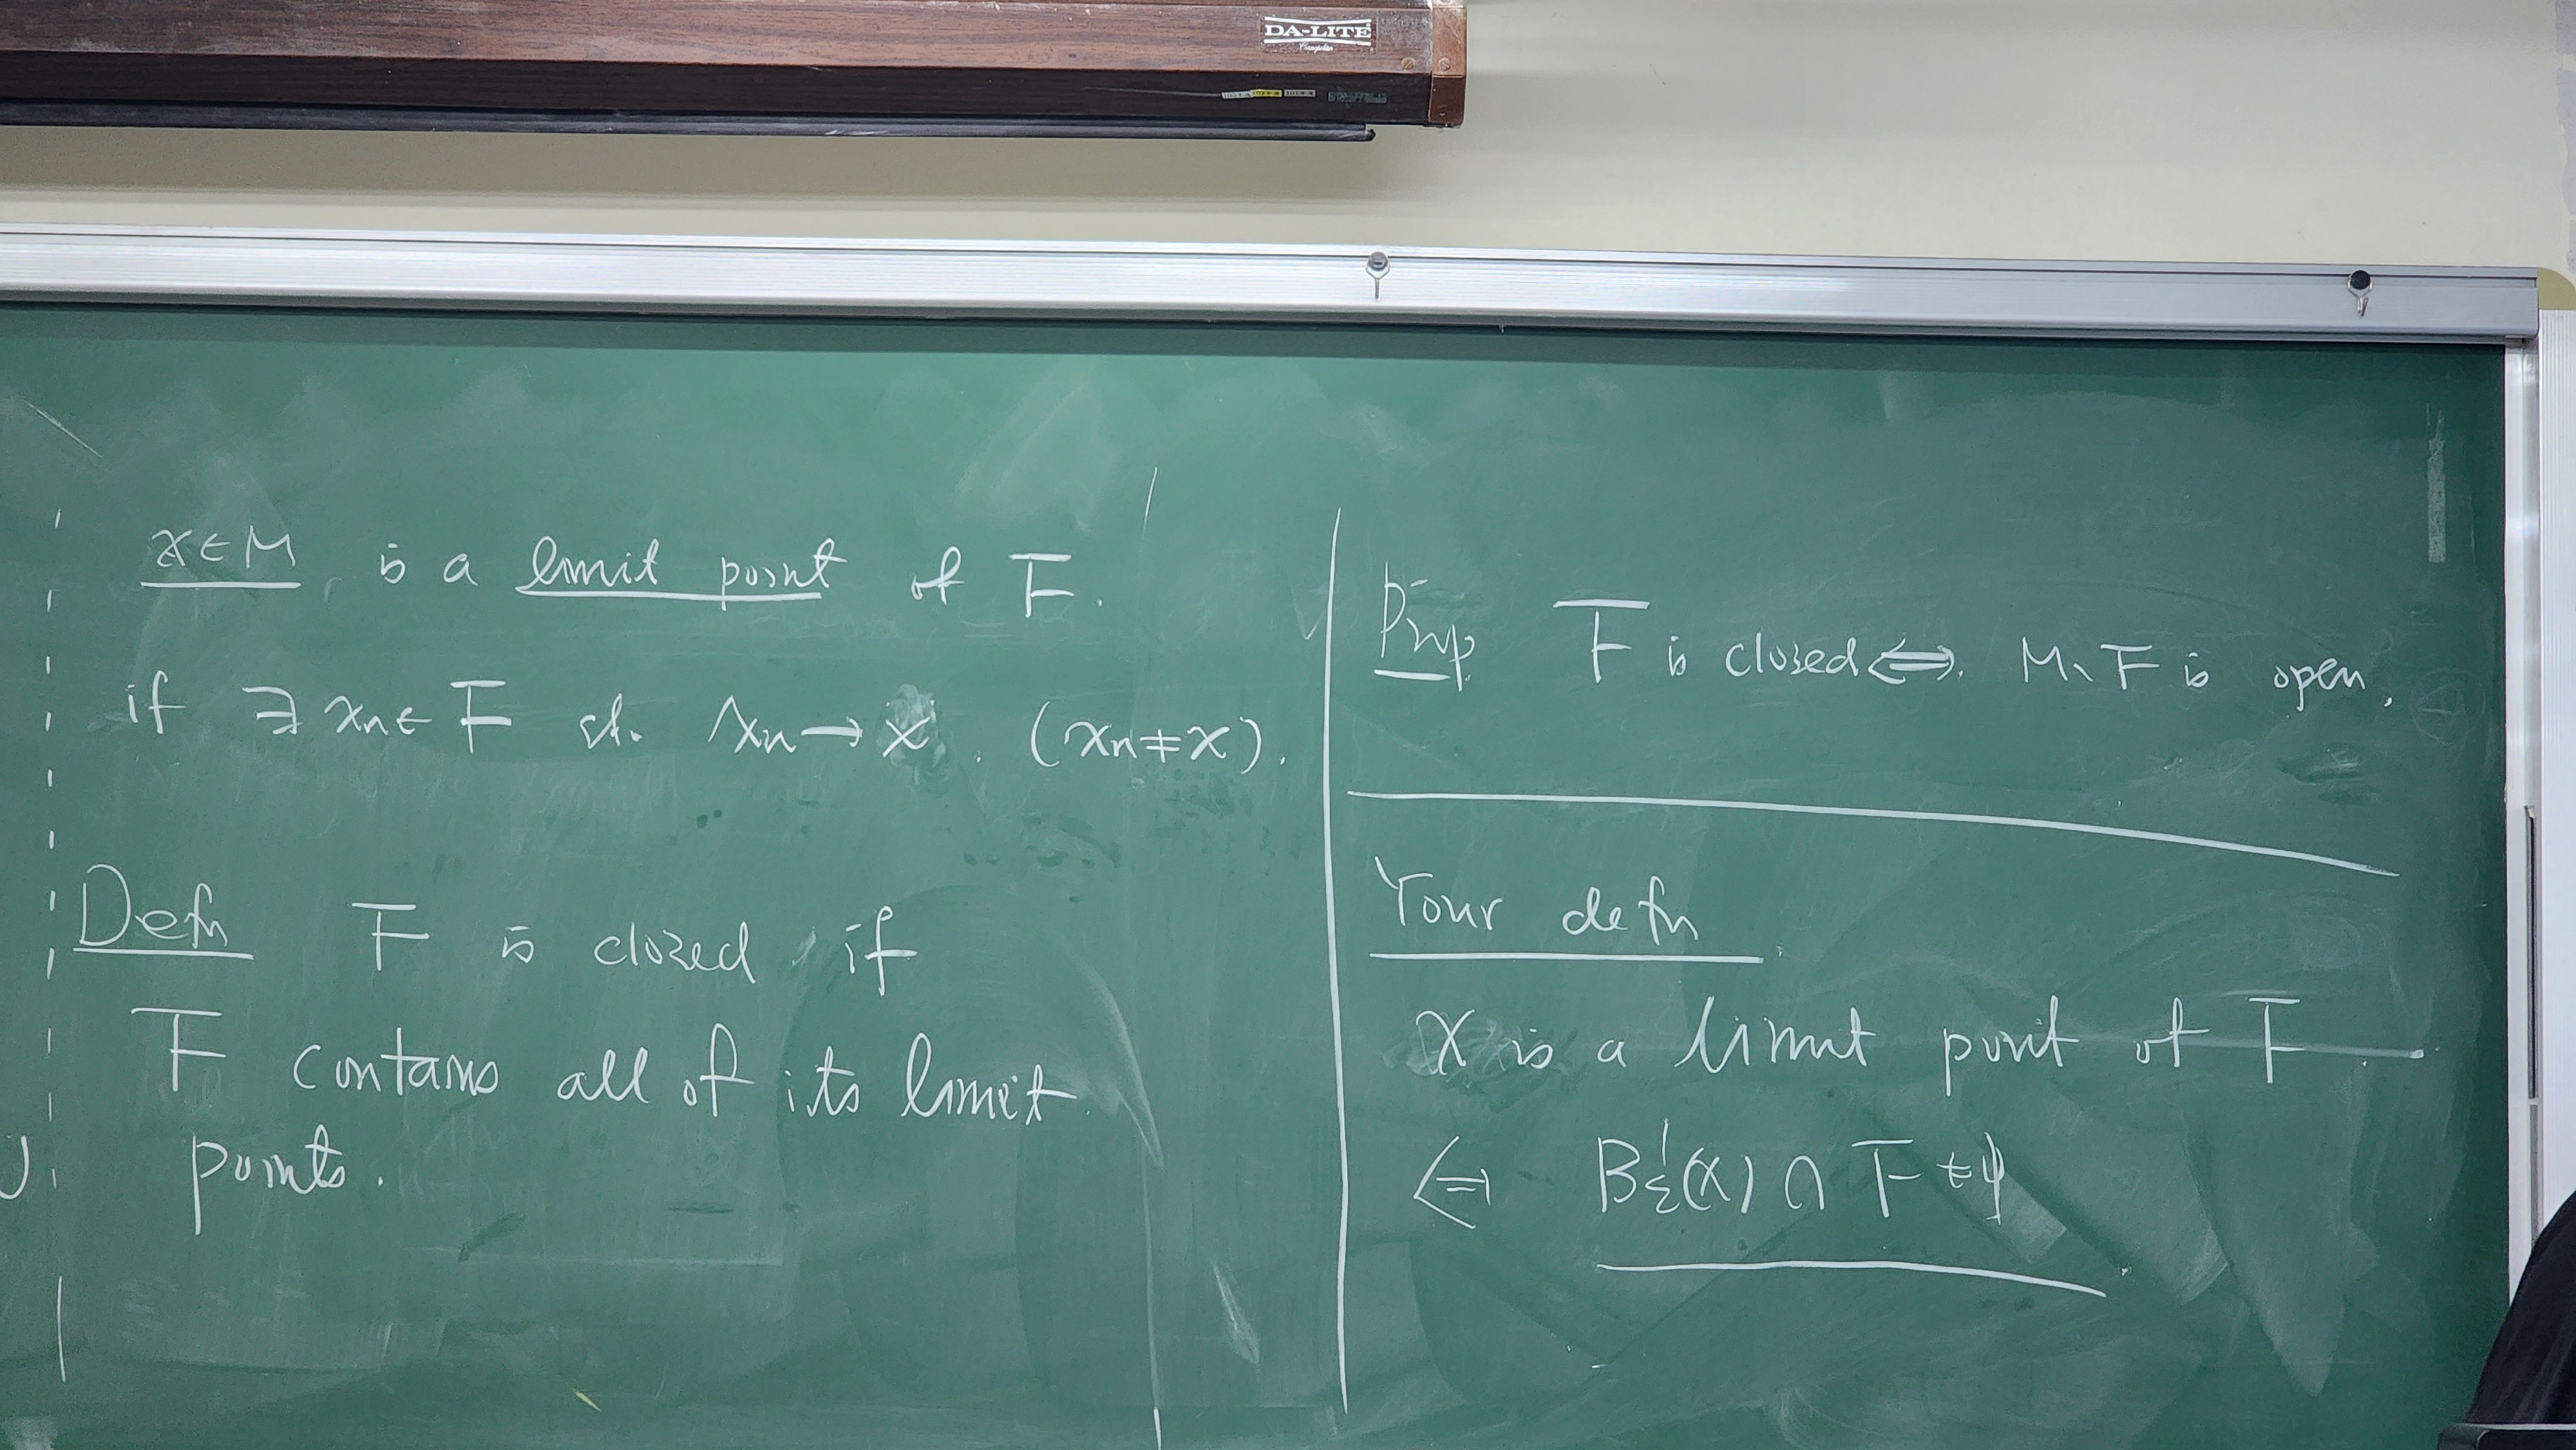 DA-LITE
x∈M is a limit point of F.
if ∃ xₙ∈ F st. xₙ → x. (xₙ≠x).
Defn F is closed if
F contains all of its limit
points.
Prop. F is closed ⟺. M∖F is open.
Your defn
x is a limit point of F.
⟺ B'ε(x) ∩ F ≠ φ